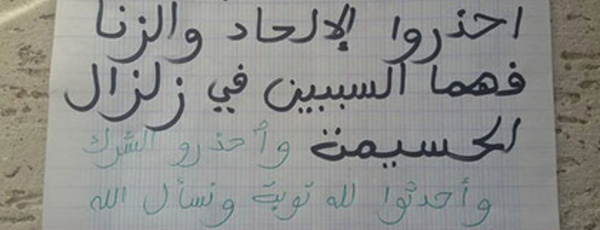 احذروا الإلحاد والزنا
فهما السببين في زلزال
الحسيمة وأحذرو الشرك
وأحدثوا لله توبة ونسأل الله